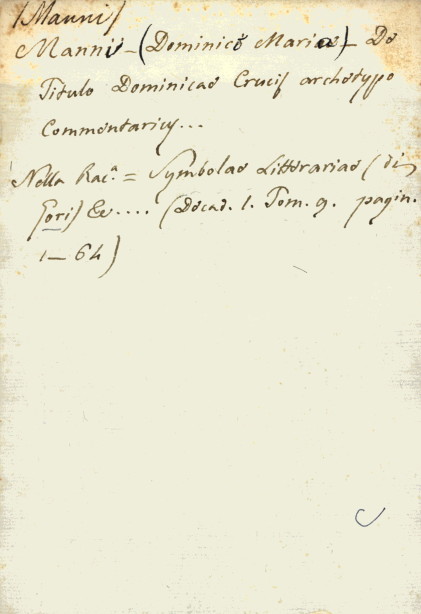 (Manni)
Manni - (Dominici Mariae) - De
Titulo Dominicae Crucis archetypo
Commentarius...
Nella Rac.ª = Symbolae Litterariae (di
Gori) &c.... (Decad. I. Tom. 9. pagin.
1 — 64)